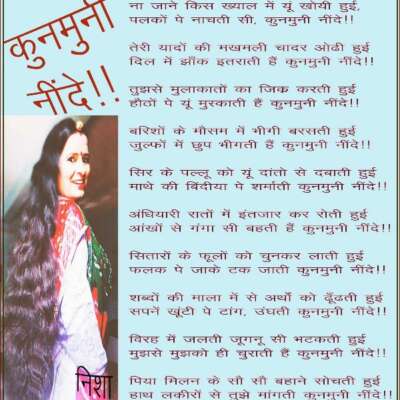 कुनमुनी
नींदे!!
ना जाने किस ख्याल में यूं खोयी हुई,
पलकों पे नाचती सी, कुनमुनी नींदे!!
तेरी यादों की मखमली चादर ओढी हुई
दिल में झाँक इतराती हैं कुनमुनी नींदे!!
तुझसे मुलाकातों का जिक्र करती हुई
होठों पे यूं मुस्काती हैं कुनमुनी नींदे!!
बरिशों के मौसम में भीगी बरसती हुई
जुल्फों में छुप भीगती हैं कुनमुनी नींदे!!
सिर के पल्लू को यूं दांतो से दबाती हुई
माथे की बिंदीया पे शर्माती कुनमुनी नींदे!!
अंधियारी रातों में इंतजार कर रोती हुई
आंखों से गंगा सी बहती हैं कुनमुनी नींदे!!
सितारों के फूलों को चुनकर लाती हुई
फलक पे जाके टक जाती कुनमुनी नींदे!!
शब्दों की माला में से अर्थो को ढूँढती हुई
सपनें खूंटी पे टांग, उंघती कुनमुनी नींदे!!
विरह में जलती जूगनू सी भटकती हुई
मुझसे मुझको ही चुराती हैं कुनमुनी नींदे!!
पिया मिलन के सौ सौ बहाने सोचती हुई
हाथ लकीरों से तुझे मांगती कुनमुनी नींदे!!
निशा